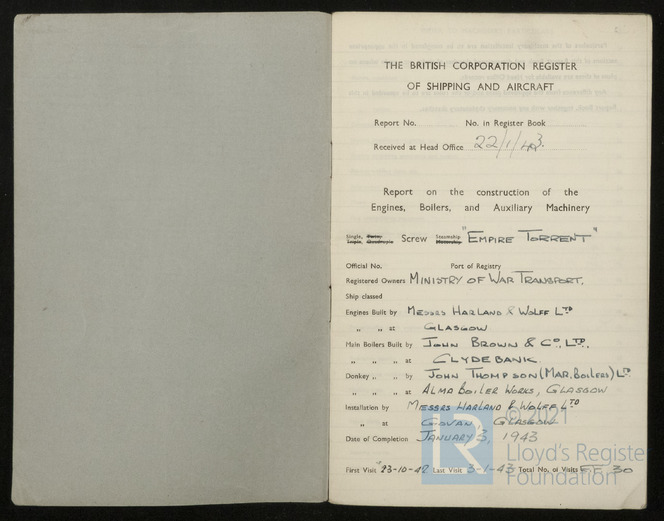 THE BRITISH CORPORATION REGISTER
OF SHIPPING AND AIRCRAFT
Report No. No. in Register Book
Received at Head Office 22/1/43.
Report on the construction of the
Engines, Boilers, and Auxiliary Machinery
Single, Twin, Triple, Quadruple Screw Steamship. Motorship. "EMPIRE TORRENT"
Official No. Port of Registry
Registered Owners MINISTRY OF WAR TRANSPORT.
Ship classed
Engines Built by MESSRS HARLAND & WOLFF LTD
" " at GLASGOW
Main Boilers Built by JOHN BROWN & CO, LTD.
" " " at CLYDEBANK
Donkey " " by JOHN THOMPSON (MAR. BOILERS) LTD
" " " at ALMA BOILER WORKS, GLASGOW
Installation by MESSRS HARLAND & WOLFF LTD
" at GOVAN GLASGOW
Date of Completion JANUARY 3, 1943
First Visit 23-10-42 Last Visit 3-1-43 Total No. of Visits 30
© 2021
LR
Lloyd's Register
Foundation